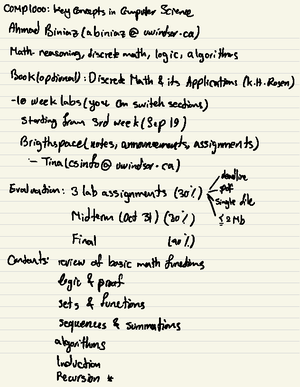 COMP1000: Key Concepts in Computer Science
Ahmad Biniaz (abiniaz @ uwindsor.ca)
Math reasoning, discrete math, logic, algorithms
Book(optional): Discrete Math & its Applications (K.H. Rosen)
-10 week labs (you can switch sections)
Starting from 3rd week (Sep 19)
Brightspace (notes, announcements, assignments)
- Tina (csinfo @ uwindsor.ca)
Evaluation: 3 lab assignments (30%)
deadline
pdf
single file
≤ 2 Mb
Midterm (Oct 31) (30%)
Final (40%)
Contents: review of basic math functions
logic & proof
sets & functions
sequences & summations
algorithms
Induction
Recursion *